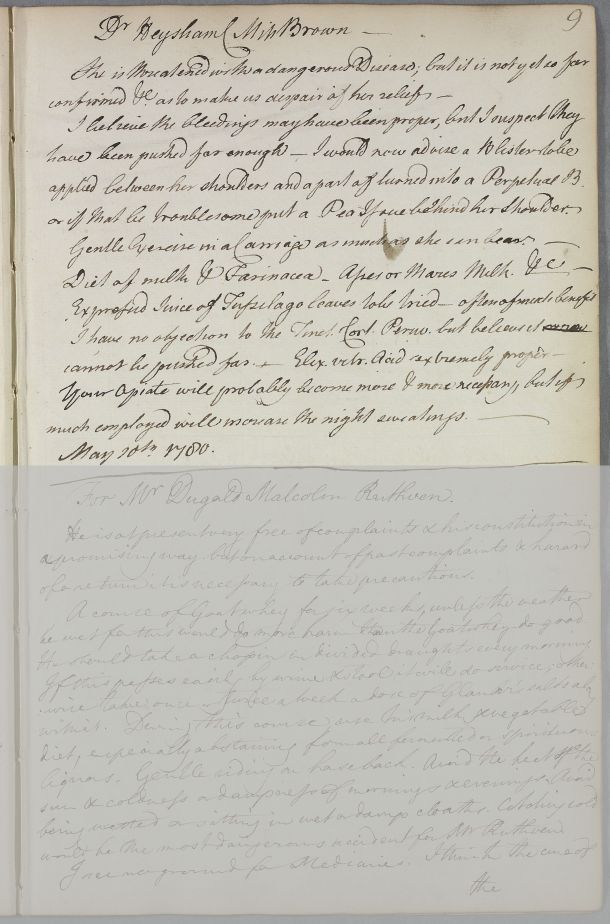 9
Dr Heysham (Miss Brown —
She is threatened with a dangerous Disease; but it is not yet so far
confirmed &c. as to make us despair of her relief —
I believe the bleedings may have been proper, but I suspect they
have been pushed far enough — I would now advise a Blister to be
applied between her shoulders and a part of turned into a Perpetual B.
or if that be troublesome put a Pea Issue behind her Shoulder.
Gentle Exercise in a Carriage as much as she can bear. —
Diet of milk & Farinacea — Apes or Mares Milk. &c —
Expressed Juice of Tussilago leaves to be tried — often of much benefit
I have no objection to the Tinct. Cort. Peruv. but believe it
cannot be pushed far. + Elix. vitr. Acid extremely proper —
Your Opiate will probably become more & more necessary, but if
much employed will increase the night sweatings.
May 10th 1780.
For Mr Dugald Malcolm Ruthven.
He is at present very free of complaints & his constitution in
a promising way but on account of past complaints & hazard
of a return it is necessary to take precautions.
A course of Goat whey for six weeks, unless the weather
be wet for this would do more harm than the Goat whey do good
He should take a chopin in divided draughts every morning
If this passes easily by urine & stool it will do service, other
wise take once or twice a week a dose of Glauber salts along
with it. During this course use his milk & vegetable
diet, especially abstaining from all fermented or spirituous
liquors. Gentle riding on horseback. Avoid the heat of the
sun & coldness or dampness of mornings & evenings. Avoid
being wetted or sitting in wet or damp cloaths. Catching cold
would be the most dangerous accident for Mr Ruthven
I see no ground for Medicines. I think the cure of
the